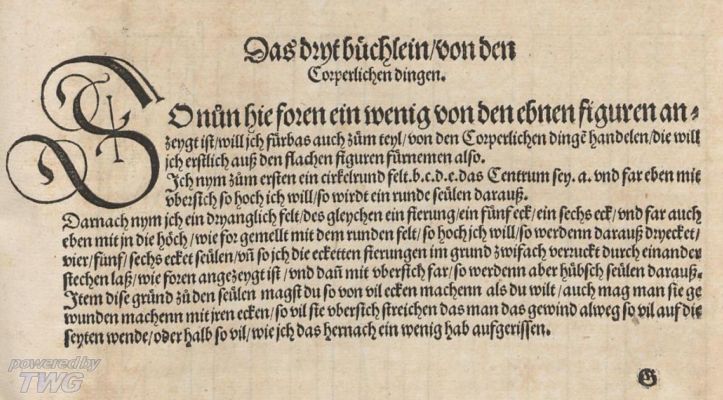 Das dryt büchlein/von den
Corperlichen dingen.
SO nůn hie foren ein wenig von den ebnen figuren an⸗
zeygt ist/will jch fürbas auch zům teyl/von den Corperlichen dingē handelen/die will
jch erstlich auß den flachen figuren fürnemen also.
Jch nym zům ersten ein cirkelrund felt.b.c.d.e.das Centrum sey.a.vnd far eben mit
vbersich so hoch ich will/so wirdt ein runde seülen darauß.
Darnach nym jch ein dryanglich felt/des gleychen ein fierung/ein fünfeck/ein sechs eck/vnd far auch
eben mit jn die höch/wie for gemellt mit dem runden felt/so hoch jch will/so werdenn darauß dryecket/
vier/fünf/sechs ecket seülen/vñ so jch die ecketten fierungen im grund zwifach verruckt durch einander
stechen laß/wie foren angezeygt ist/vnd dañ mit vbersich far/so werdenn aber hübsch seülen darauß.
Jtem dise gründ zů den seülen magst du so von vil ecken machenn als du wilt/auch mag man sie ge
wunden machenn mit jren ecken/so vil sie vbersich streichen das man das gewind alweg so vil auf die
seyten wende/oder halb so vil/wie jch das hernach ein wenig hab aufgerissen.
G
powered by
TWG